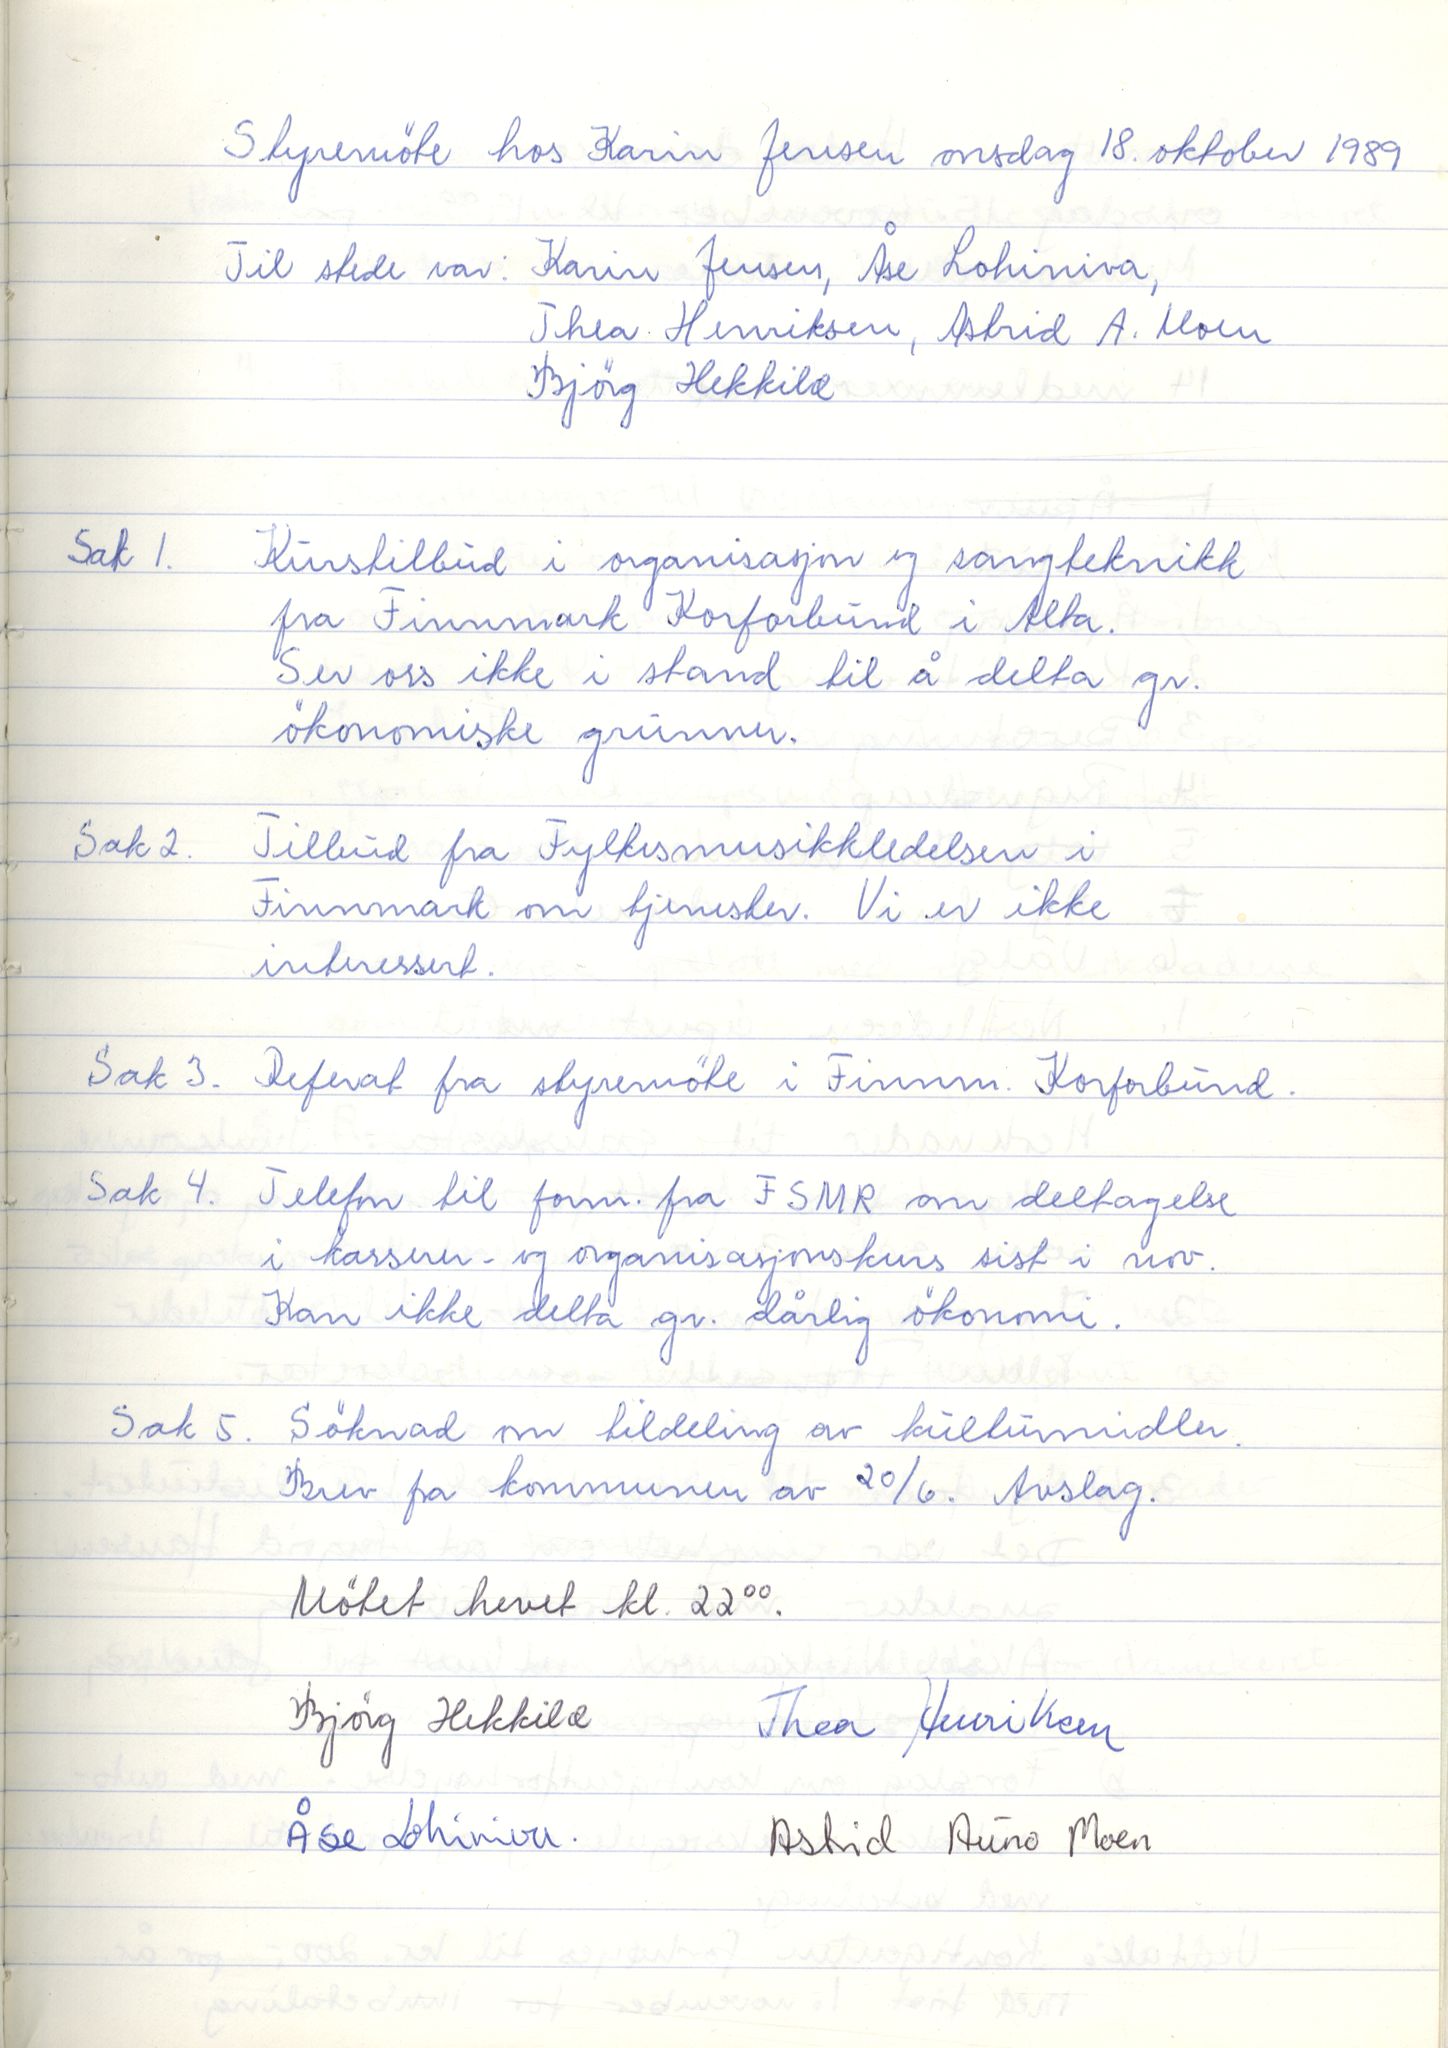 Styremöte hos Karin Jensen onsdag 18. oktober 1989
Til stede var: Karin Jensen, Åse Lohiniva,
Thea Henriksen, Astrid A. Moen
Björg Hekkilä
Sak 1. Kurstilbud i organisasjon og sangteknikk
fra Finnmark Korforbund i Alta.
Ser oss ikke i stand til å delta gr.
ökonomiske grunner.
Sak 2. Tilbud fra Fylkesmusikkledelsen i
Finnmark om tjenester. Vi er ikke
interessert.
Sak 3. Referat fra styremöte i Finnm. Korforbund.
Sak 4. Telefon til form. fra FSMR om deltagelse
i kasserer- og organisasjonskurs sist i nov.
Kan ikke delta gr. dårlig ökonomi.
Sak 5. Söknad om tildeling av kulturmidler.
Brev fra kommunen av 20/6. Avslag.
Mötet hevet kl. 22⁰⁰.
Björg Hekkilä Thea Henriksen
Åse Lohiniva. Astrid Auno Moen